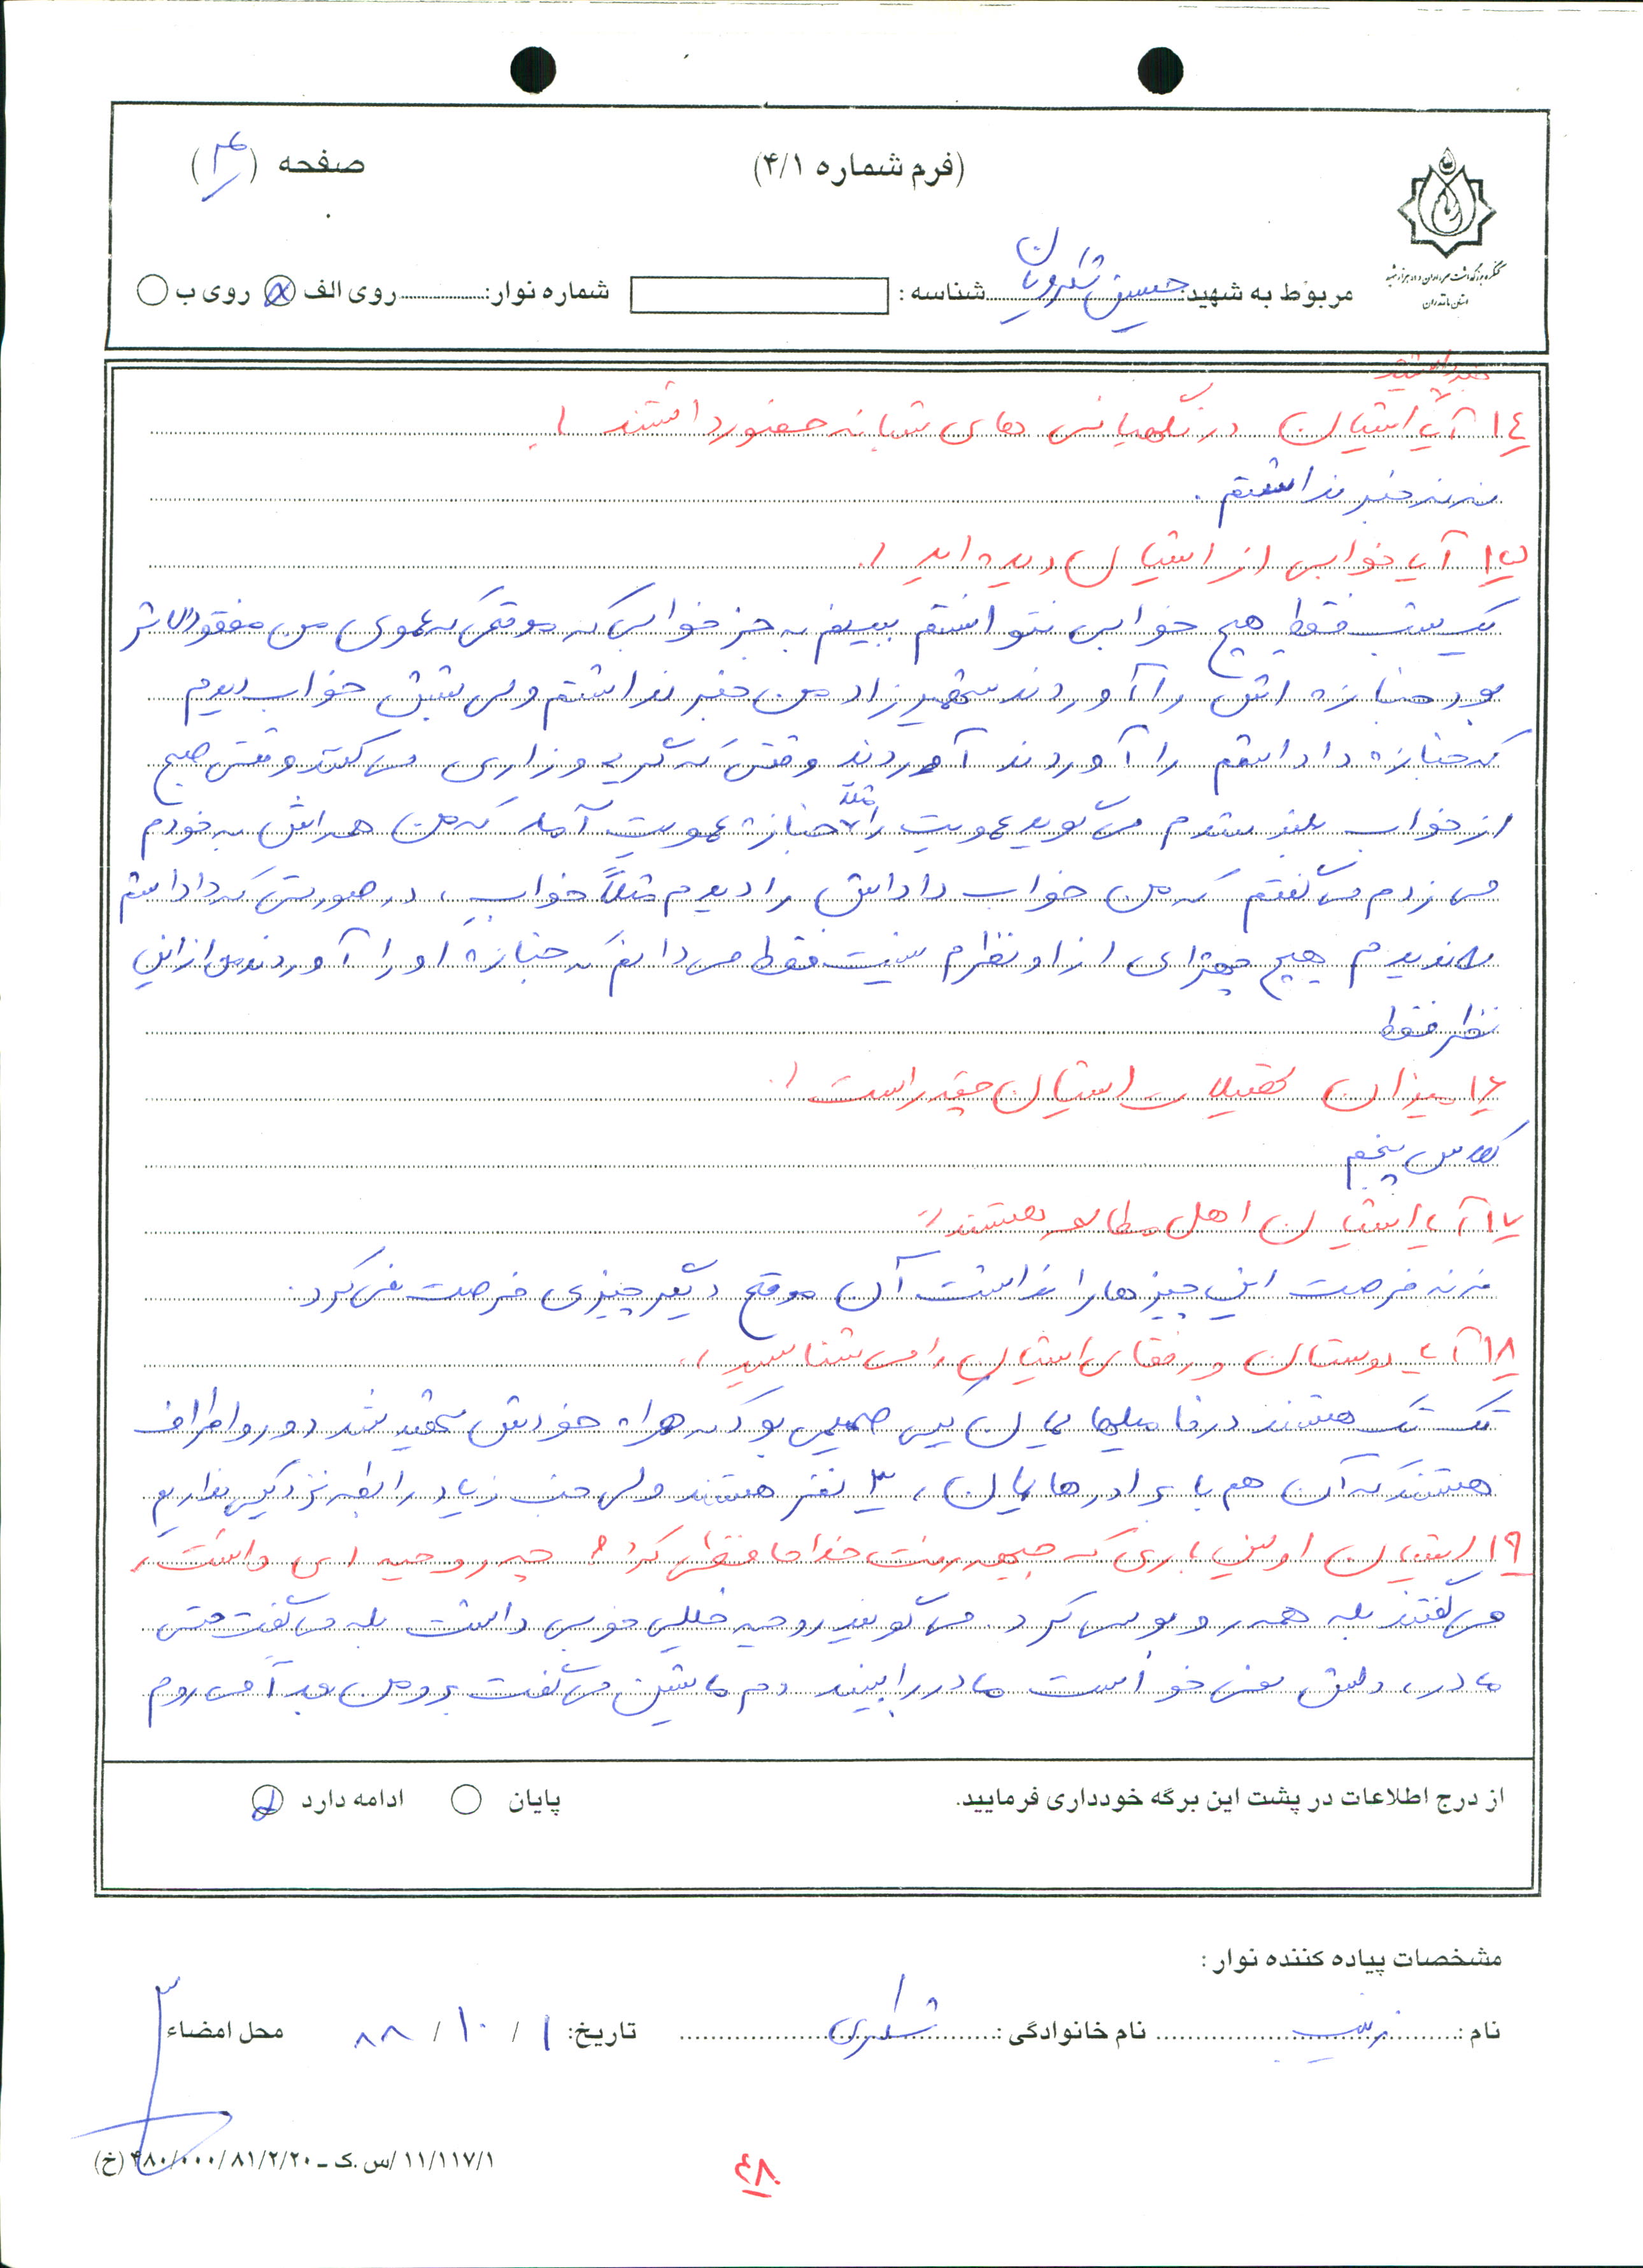 (فرم شماره ۴/۱)
صفحه (۴)
کنگره بزرگداشت سرداران و ده هزار شهید
استان مازندران
مربوط به شهید: حسین شکروبان شناسه : شماره نوار: روی الف روی ب
۱۴ آیا ایشان در نگهبانی های شبانه حضور داشتند؟
نه نه خبر نداشتم.
۱۵ آیا خوابی از ایشان دیده اید؟
یک شب فقط هیچ خوابی نتوانستم ببینم به جز خوابی که موقعی که عموی من مفقودالاثر
بود جنازه اش را آوردند شهمیرزاد من خبر نداشتم ولی شبش خواب دیدم
که جنازه داداشم را آوردند آوردند وقتی که گریه و زاری می کنند وقتی صبح
از خواب بلند شدم می گوید عمویت را مثلاً جنازه عمویت آمد که من همراش به خودم
می زدم می گفتم که من خواب داداش را دیدم مثلاً خواب، در صورتی که داداشم
را ندیدم هیچ چهره ای از او نظرم نیست فقط می دانم که جنازه او را آوردند من از این
نظر فقط
۱۶ میزان تحصیلات ایشان چقدر است؟
کلاس پنجم
۱۷ آیا ایشان اهل مطالعه هستند؟
نه نه فرصت این چیزها را نداشت آن موقع دیگر چیزی فرصت نمی کرد.
۱۸ آیا دوستان و رفقای ایشان را می شناسید؟
تک تک هستند در فامیلهایمان یکی صمیمی بود که همراه خودش شهید شد دور و اطراف
هستند که آن هم با برادرهایمان، ۳ نفر هستند ولی خب زیاد رابطه نزدیکی نداریم
۱۹ ایشان اولین باری که جبهه رفت خداحافظی کرد؟ چه روحیه ای داشت؟
می گفتند بله همه رو بوسی کرد. می گویند روحیه خیلی خوبی داشت بله می گفت حتی
مادر، دلش نمی خواست مادر را ببیند دم ماشین می گفت برو من بعداً می روم
از درج اطلاعات در پشت این برگه خودداری فرمایید.
پایان ادامه دارد
مشخصات پیاده کننده نوار :
نام : زینب نام خانوادگی : شکری تاریخ: ۱ / ۱۰ / ۸۸ محل امضاء
۱۱/۱۱۷/۱ /س.ک – ۴۸۰/۰۰۰/۸۱/۲/۲۰ (خ)
۴۸